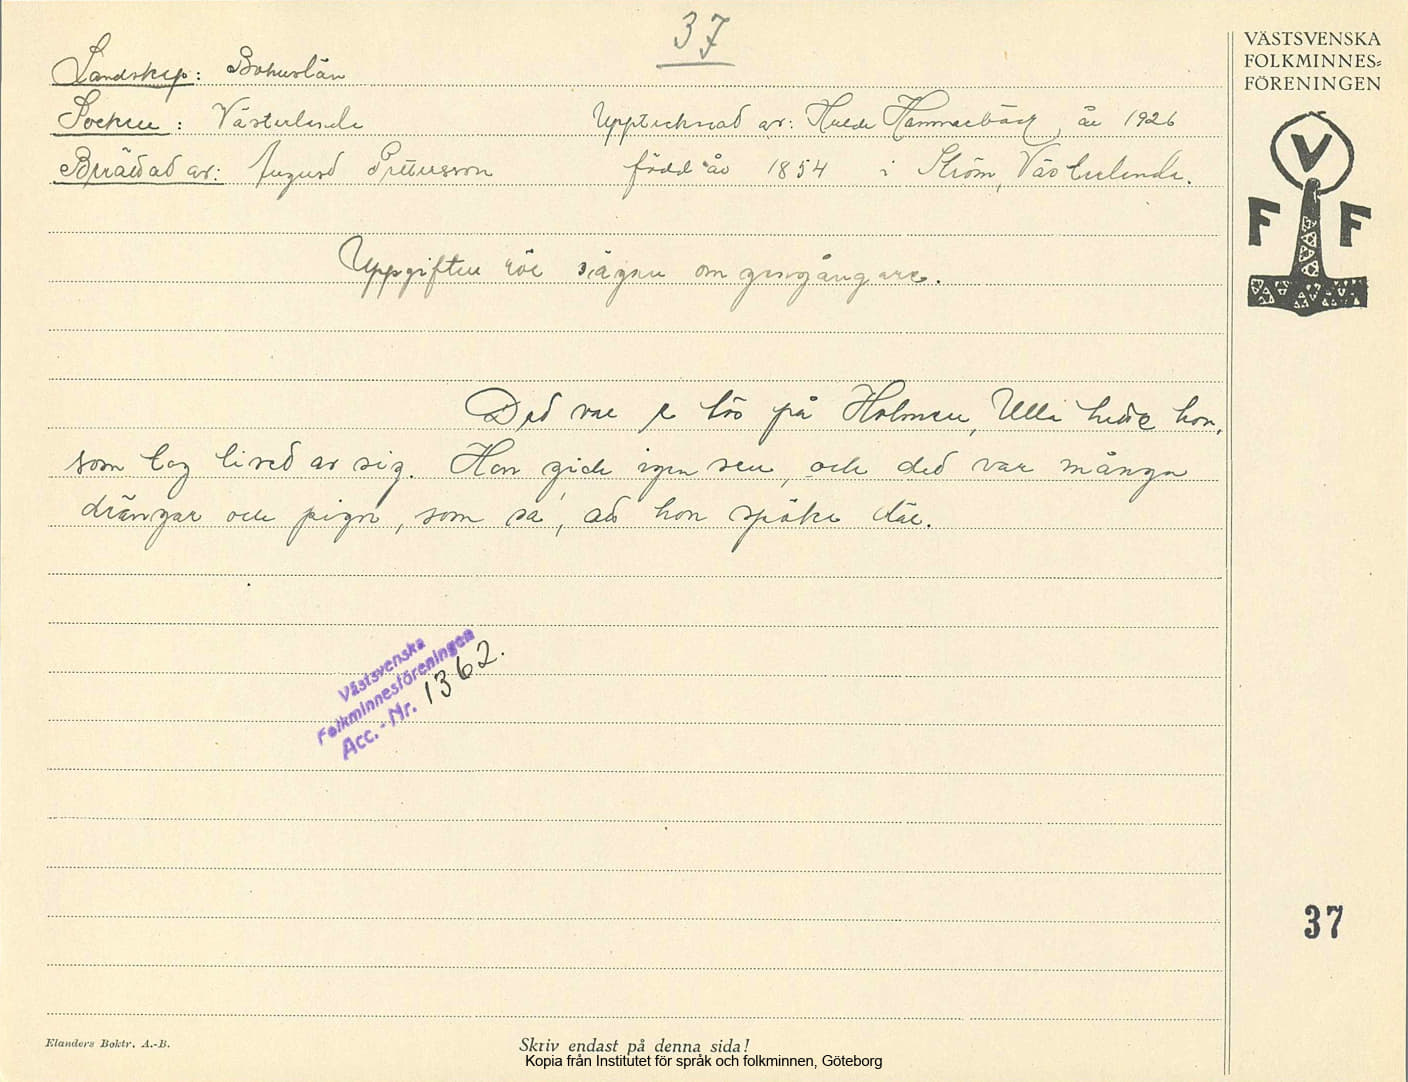 37
VÄSTSVENSKA
FOLKMINNES=
FÖRENINGEN
Landskap: Bohuslän
Socken: Västerlanda
Upptecknad av: Hulda Hammarbäck år 1926
Berättad av: August Pettersson född år 1854 i Ström, Västerlanda.
V
F F
Uppgiften rör sägen om gengångare.
Ded var e tös på Holmen, Ulla hette hon,
som tog lived av sig. Hon gick igen sen, och ded var många
drängar och pigor, som sa, att hon spöka där.
Västsvenska
Folkminnesföreningen
Acc.-Nr. 1362.
37
Elanders Boktr. A.-B.
Skriv endast på denna sida!
Kopia från Institutet för språk och folkminnen, Göteborg